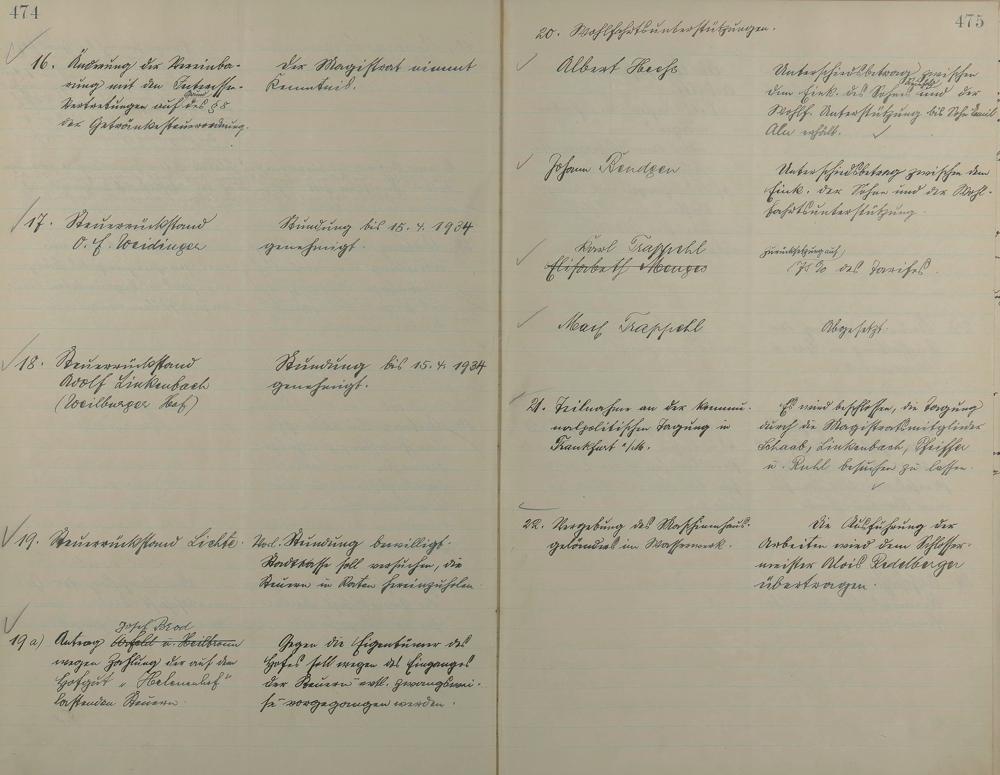 474
16. Änderung der Vereinba-
rung mit den Interessen-
Vertretungen auf Grund des § 8
der Getränkesteuerordnung.
Der Magistrat nimmt
Kenntnis.
17. Steuerrückstand
O. F. Weidinger
Stundung bis 15. 4. 1934
genehmigt.
18. Steuerrückstand
Adolf Linkenbach
(Weilburger Hof)
Stundung bis 15. 4. 1934
genehmigt.
19. Steuerrückstand Lichte.
Stundung bewilligt.
Stadtkasse soll versuchen, die
Steuern in Raten hereinzuholen
19a) Antrag Josef Brod
u. Heilbronn
wegen Zahlung der auf dem
Hofgut "Helenenhof"
lastenden Steuern.
Gegen die Eigentümer des
Hofes soll wegen des Einganges
der Steuern evtl. zwangswei-
se vorgegangen werden.
475
20. Wohlfahrtsunterstützungen.
Albert
Unterschiedsbetrag zwischen
dem Eink. des Sohnes und der
Wohlf. Unterstützung bis Sohn Emil
Alu erhält.
Johann
Unterschiedsbetrag zwischen dem
Eink. der Söhne und der Wohl-
fahrtsunterstützung.
Karl Trappehl
Elisabeth Menges
Zurücksetzung auf
75 % des Tarifes.
Max Trappehl
Abgesetzt.
21. Teilnahme an der kommu-
nalpolitischen Tagung in
Frankfurt a/M.
Es wird beschlossen, die Tagung
durch die Magistratsmitglieder
Schaab, Linkenbach, Pfeiffer
u. Ruhl besuchen zu lassen.
22. Vergebung des Maschinenhaus-
geländers im Wasserwerk.
Die Ausführung der
Arbeiten wird dem Schlosser-
meister Alois Redelberger
übertragen.